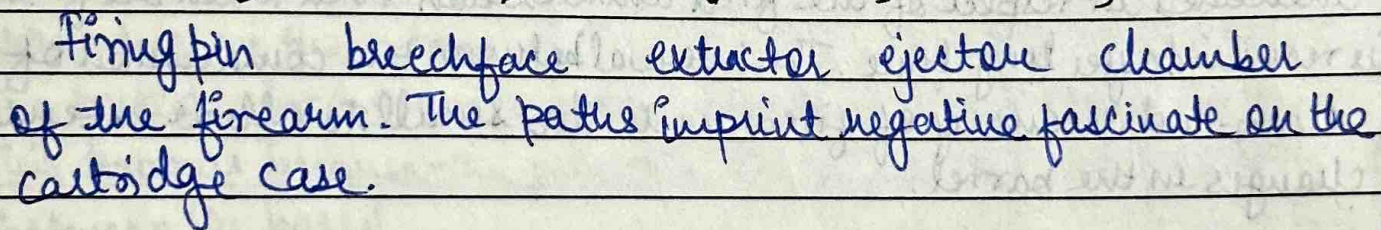 firing pin breechface extractor ejector chamber
of the firearm. The paths imprint negative fascinate on the
cartridge case.